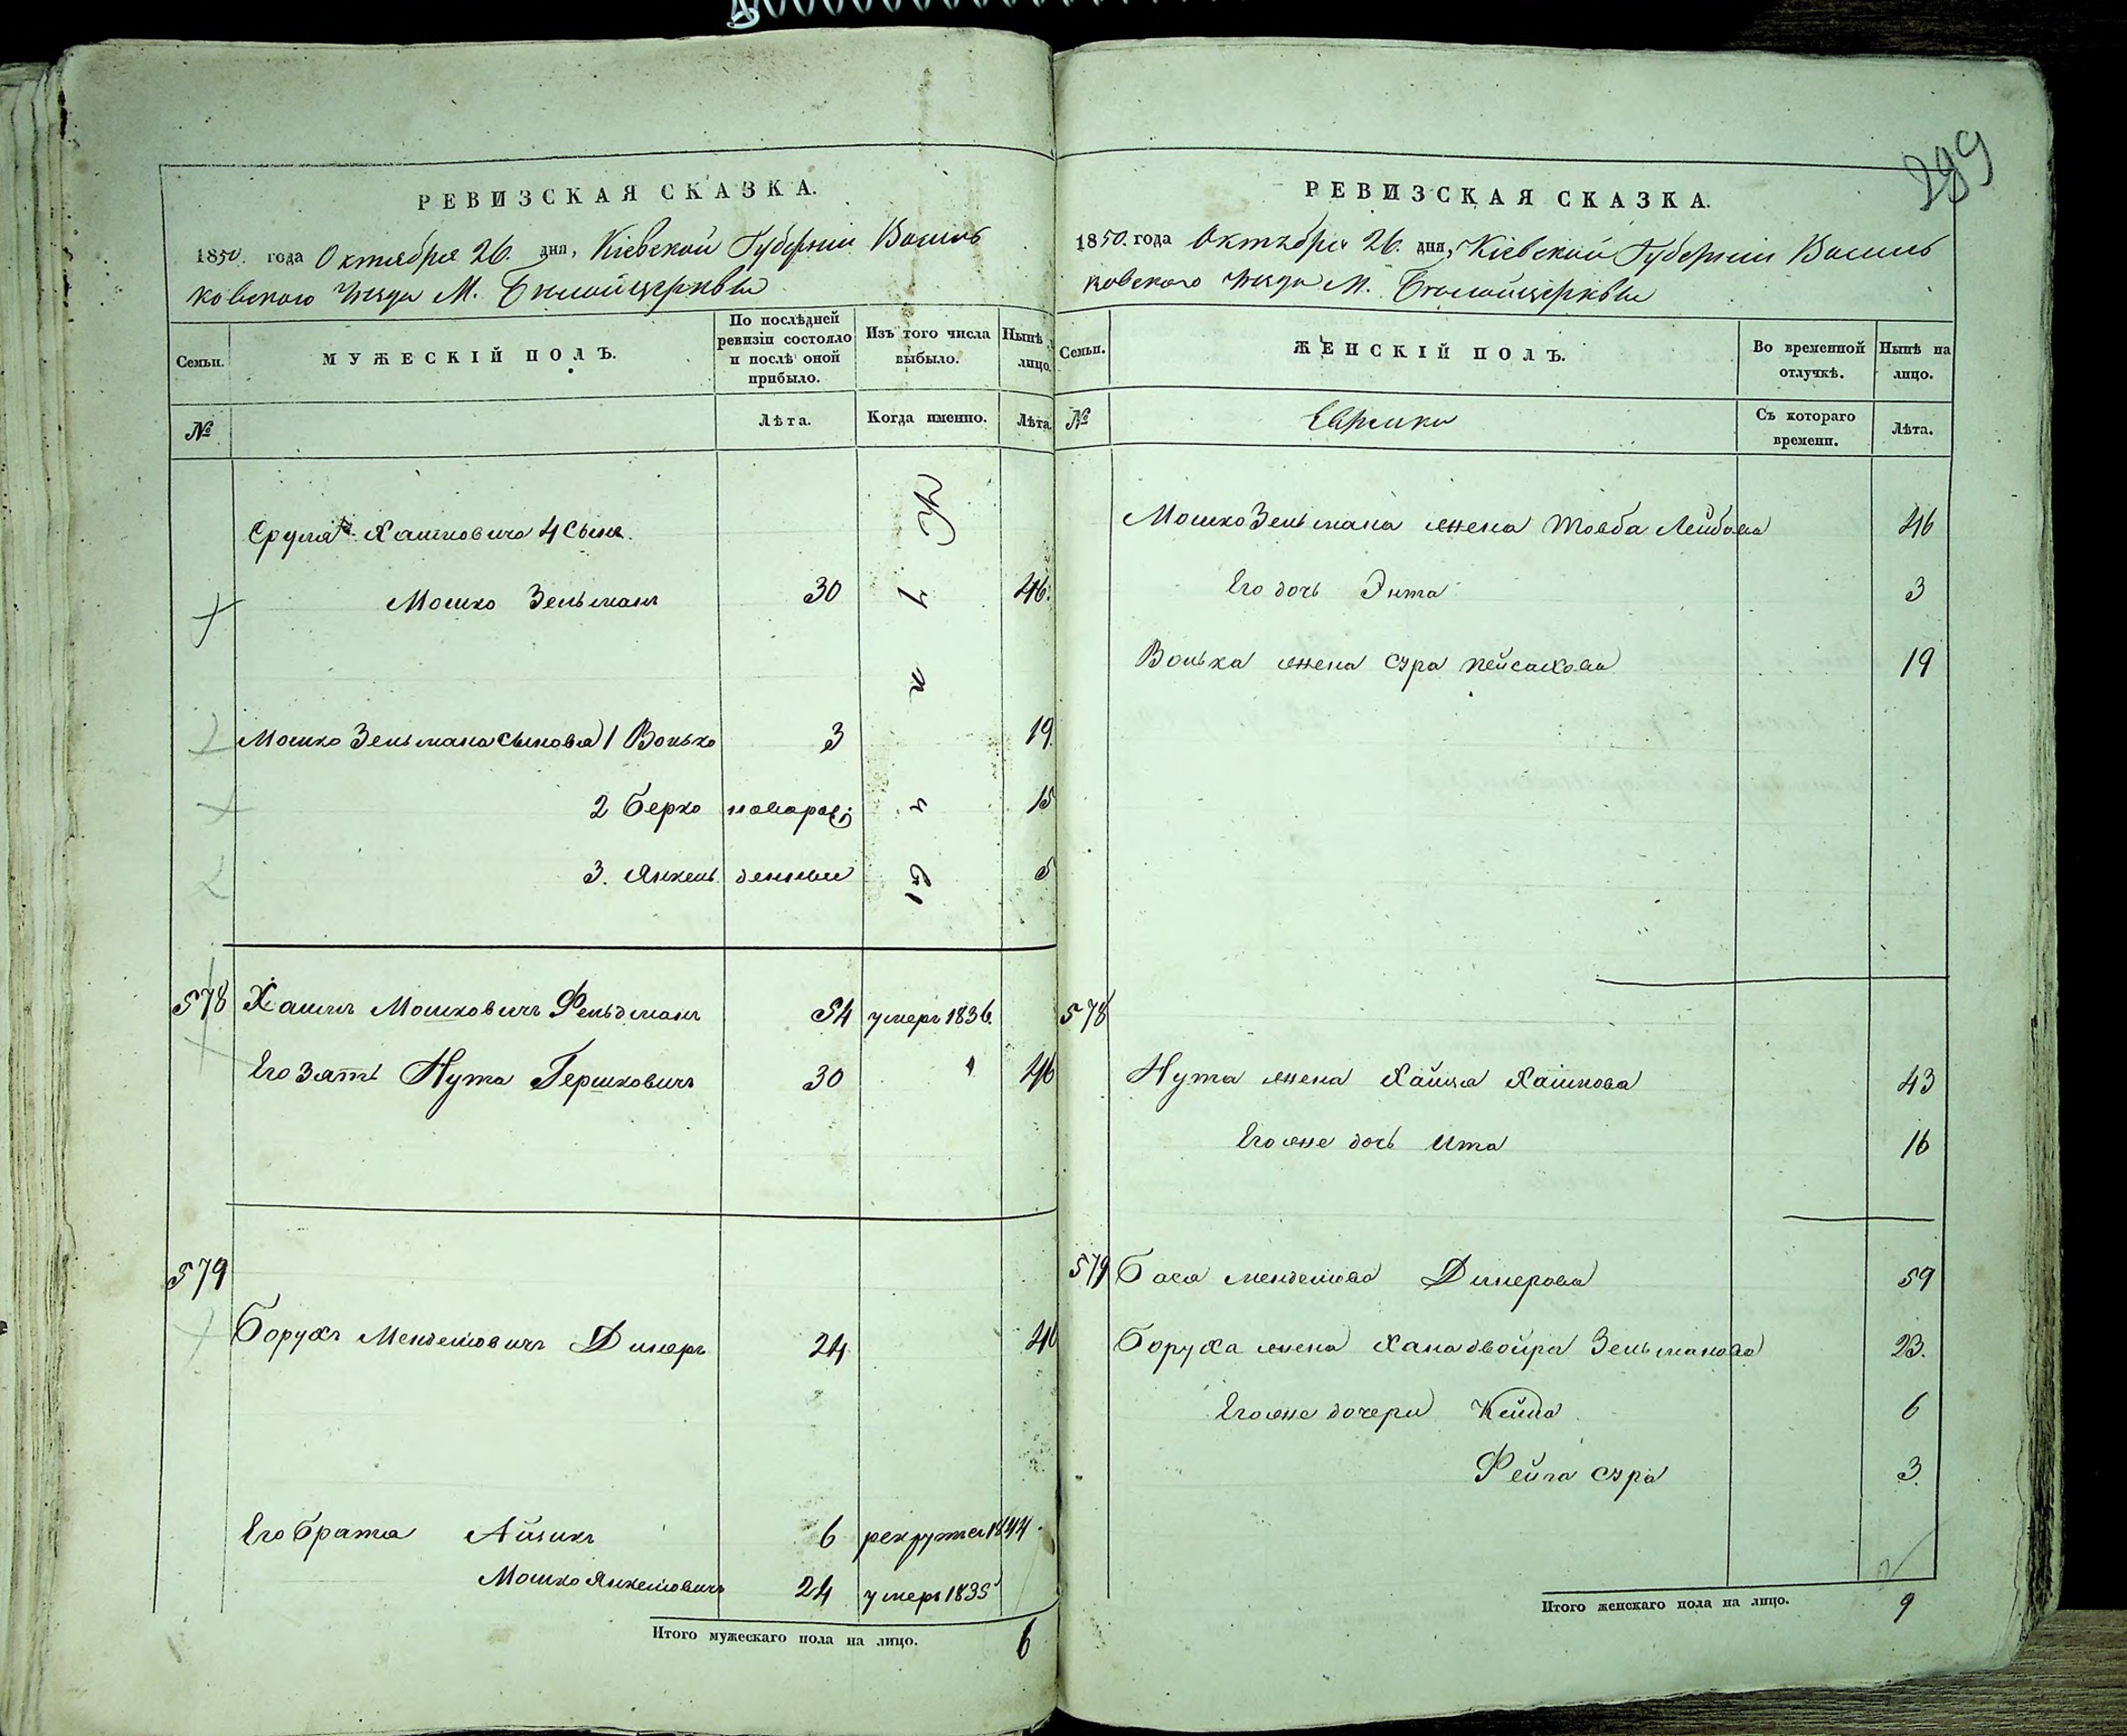 289
РЕВИЗСКАЯ СКАЗКА.
1850. года Октября 26. дня, Кіевской Губерніи Василь
ковскаго Уезда М. Белойцеркви
Семьи.
МУЖЕСКІЙ ПОЛЪ.
По послѣдней ревизіи состояло и послѣ оной прибыло.
Изъ того числа выбыло.
Нынѣ на лицо.
№
Лѣта.
Когда именно.
Лѣта.
Сруля Хаимовича 4 сына
Мошко Зельманъ 30 46.
Мошко Зельмана сыновья 1 Волько 3 19.
2 Берко новорож 15
3. Янкель денные 5
578 Хаимъ Мошковичъ Фельдманъ 54 умеръ 1836.
Его зять Нута Гершковичъ 30 46
579
Борухъ Менделіовичъ Динеръ 24 40
Его брата Айзикъ 6 рекрутъ 1844
Мошко Янкеліовичъ 24 умеръ 1835
Итого мужескаго пола на лицо. 6
РЕВИЗСКАЯ СКАЗКА.
1850. года Октября 26. дня, Кіевской Губерніи Василь
ковскаго Уезда М. Белойцеркви
Семьи.
ЖЕНСКІЙ ПОЛЪ.
Во временной отлучкѣ.
Нынѣ на лицо.
№
Евреики
Съ котораго времени.
Лѣта.
Мошко Зельмана жена Товба Лейбова 46
Его дочь Энта 3
Волька жена Сура Пейсахова 19
578
Нута жена Хайця Хаимова 43
Его же дочь Ита 16
579 Бася Менделіова Динерова 59
Боруха жена Хана двойра Зельманова 23.
Его же дочери Кейла 6
Фейга сура 3.
Итого женскаго пола на лицо. 9